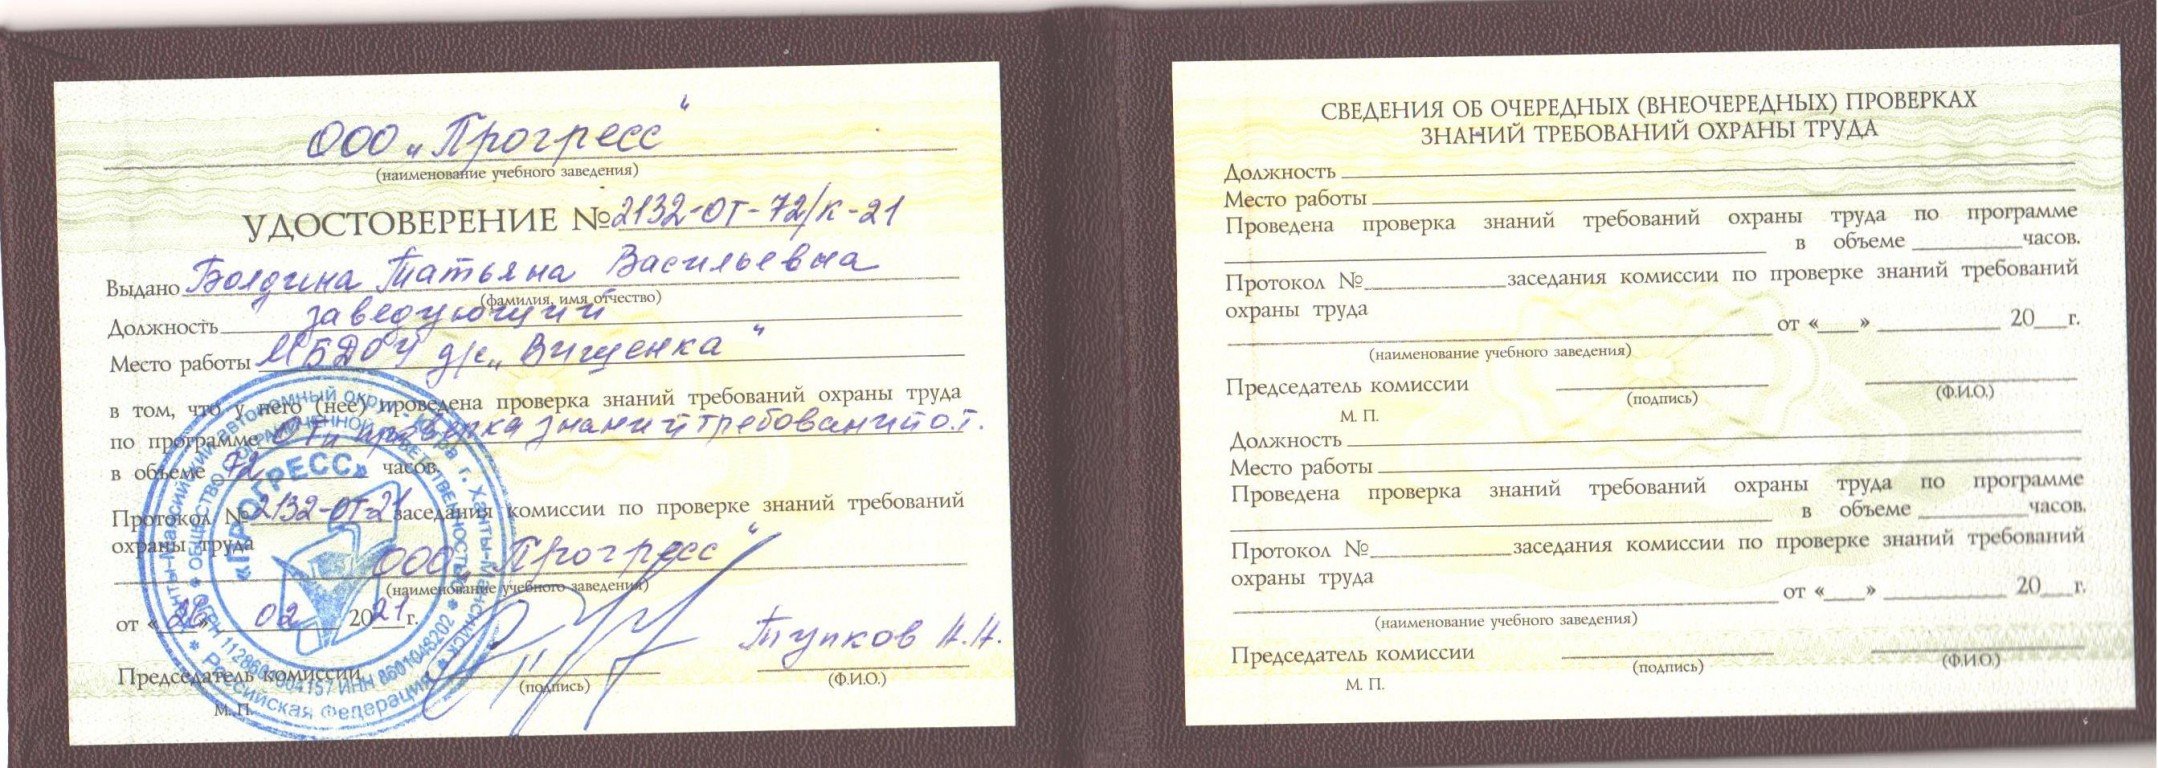 ООО „Прогресс“
(наименование учебного заведения)
УДОСТОВЕРЕНИЕ № 2132-ОТ-72/К-21
Выдано Болдина Татьяна Васильевна
(фамилия, имя отчество)
Должность заведующий
Место работы МБДОУ д/с „Вишенка“
в том, что у него (нее) проведена проверка знаний требований охраны труда
по программе ОТ и проверка знаний требований о.т.
в объеме 72 часов.
Протокол № 2132-ОТ-21 заседания комиссии по проверке знаний требований
охраны труда
ООО „Прогресс“
(наименование учебного заведения)
от «26» 02 2021 г.
Председатель комиссии
(подпись)
Тупков Н.Н.
(Ф.И.О.)
М. П.
Ханты-Мансийский автономный округ - Югра г. Ханты-Мансийск * Российская Федерация *
ОБЩЕСТВО С ОГРАНИЧЕННОЙ ОТВЕТСТВЕННОСТЬЮ * ИНН 8601048202
«ПРОГРЕСС»
СВЕДЕНИЯ ОБ ОЧЕРЕДНЫХ (ВНЕОЧЕРЕДНЫХ) ПРОВЕРКАХ
ЗНАНИЙ ТРЕБОВАНИЙ ОХРАНЫ ТРУДА
Должность
Место работы
Проведена проверка знаний требований охраны труда по программе
в объеме часов.
Протокол № заседания комиссии по проверке знаний требований
охраны труда
от «___» 20__г.
(наименование учебного заведения)
Председатель комиссии
(подпись)
(Ф.И.О.)
М. П.
Должность
Место работы
Проведена проверка знаний требований охраны труда по программе
в объеме часов.
Протокол № заседания комиссии по проверке знаний требований
охраны труда
от «___» 20__г.
(наименование учебного заведения)
Председатель комиссии
(подпись)
(Ф.И.О.)
М. П.